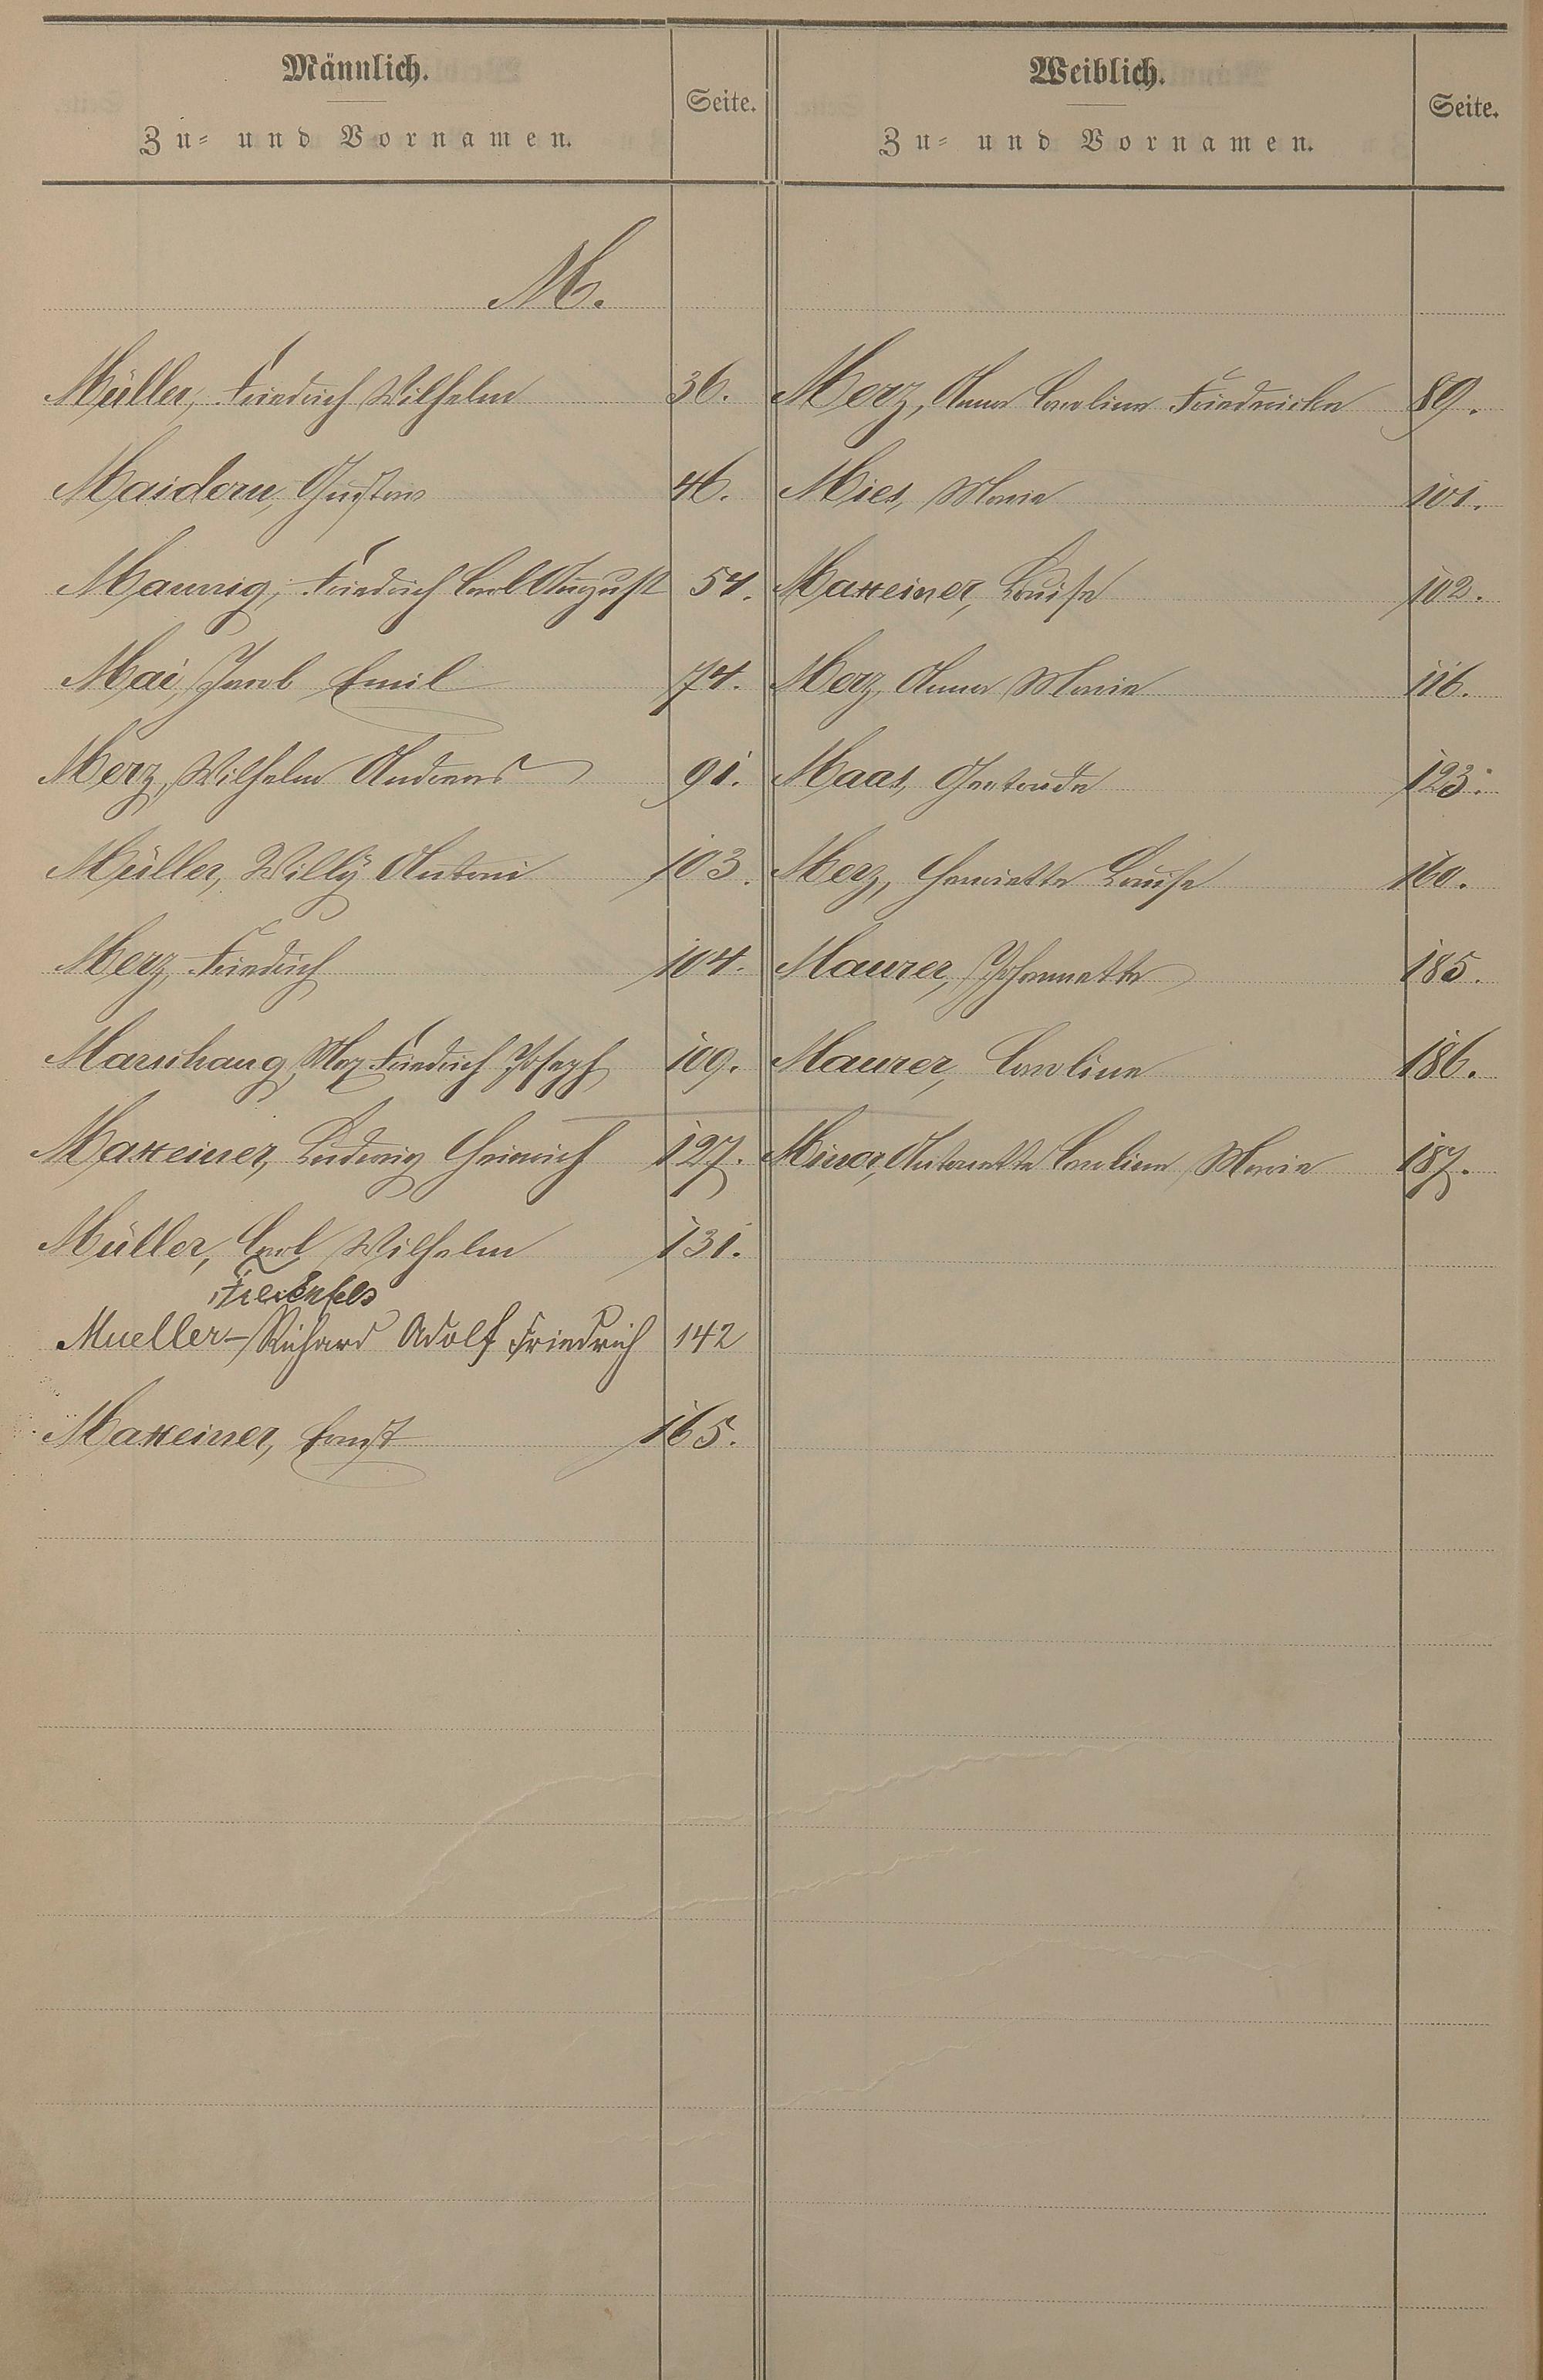 Männlich.
Zu- und Vornamen.
Seite.
Weiblich.
Zu- und Vornamen.
Seite.
M.
Müller, Friedrich Wilhelm 36.
Maidorn, Gustav 46.
Mannig, Friedrich Carl August 54.
Mai, Jacob Emil 74.
Merz, Wilhelm Andreas 91.
Müller, Willÿ Antoni 103.
Merz, Friedrich 104.
Marxhang, Max Friedrich Joseph 109.
Maxeiner, Ludwig Heinrich 127.
Müller, Carl Wilhelm 131.
Mueller- Richard Adolf Friedrich 142
Maxeiner, Ernst 165.
Merz, Anna Caroline Friedericke 89.
Mies, Marie 101.
Maxeiner, Louise 102.
Merz, Anna Marie 116.
Maas, Gertrude 123.
Merz, Henriette Louise 160.
Maurer, Johannette 185.
Maurer, Caroline 186.
Minor, Antonette Caroline Marie 187.